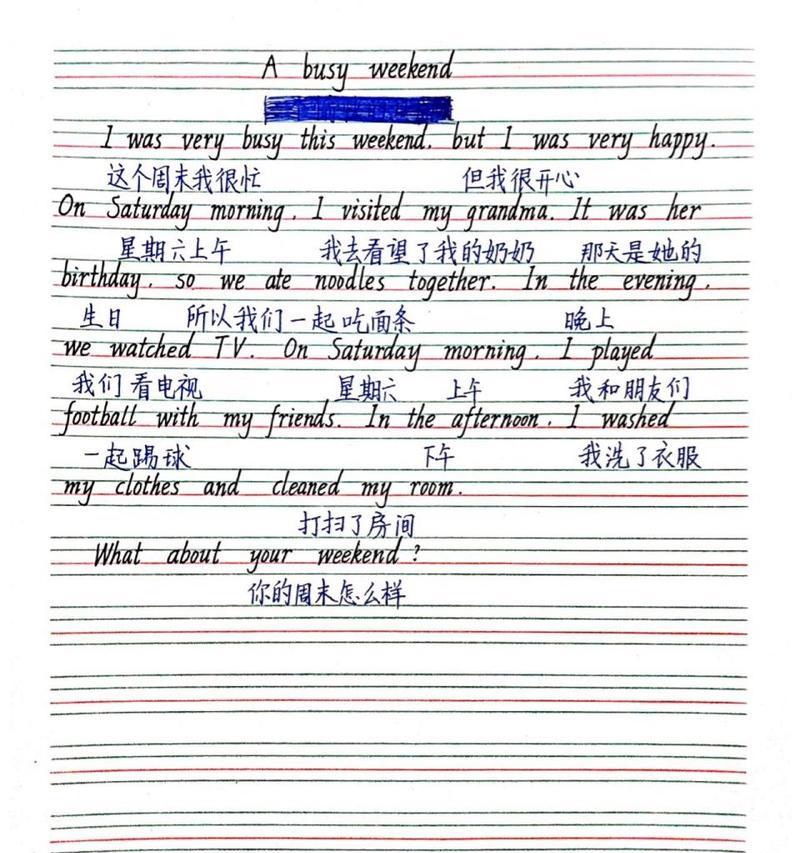 A busy weekend
I was very busy this weekend. but I was very happy.
这个周末我很忙 但我很开心
On Saturday morning. I visited my grandma. It was her
星期六上午 我去看望了我的奶奶 那天是她的
birthday. so we ate noodles together. In the evening.
生日 所以我们一起吃面条 晚上
we watched TV. On Saturday morning. I played
我们看电视 星期六 上午 我和朋友们
football with my friends. In the afternoon. I washed
一起踢球 下午 我洗了衣服
my clothes and cleaned my room.
打扫了房间
What about your weekend?
你的周末怎么样